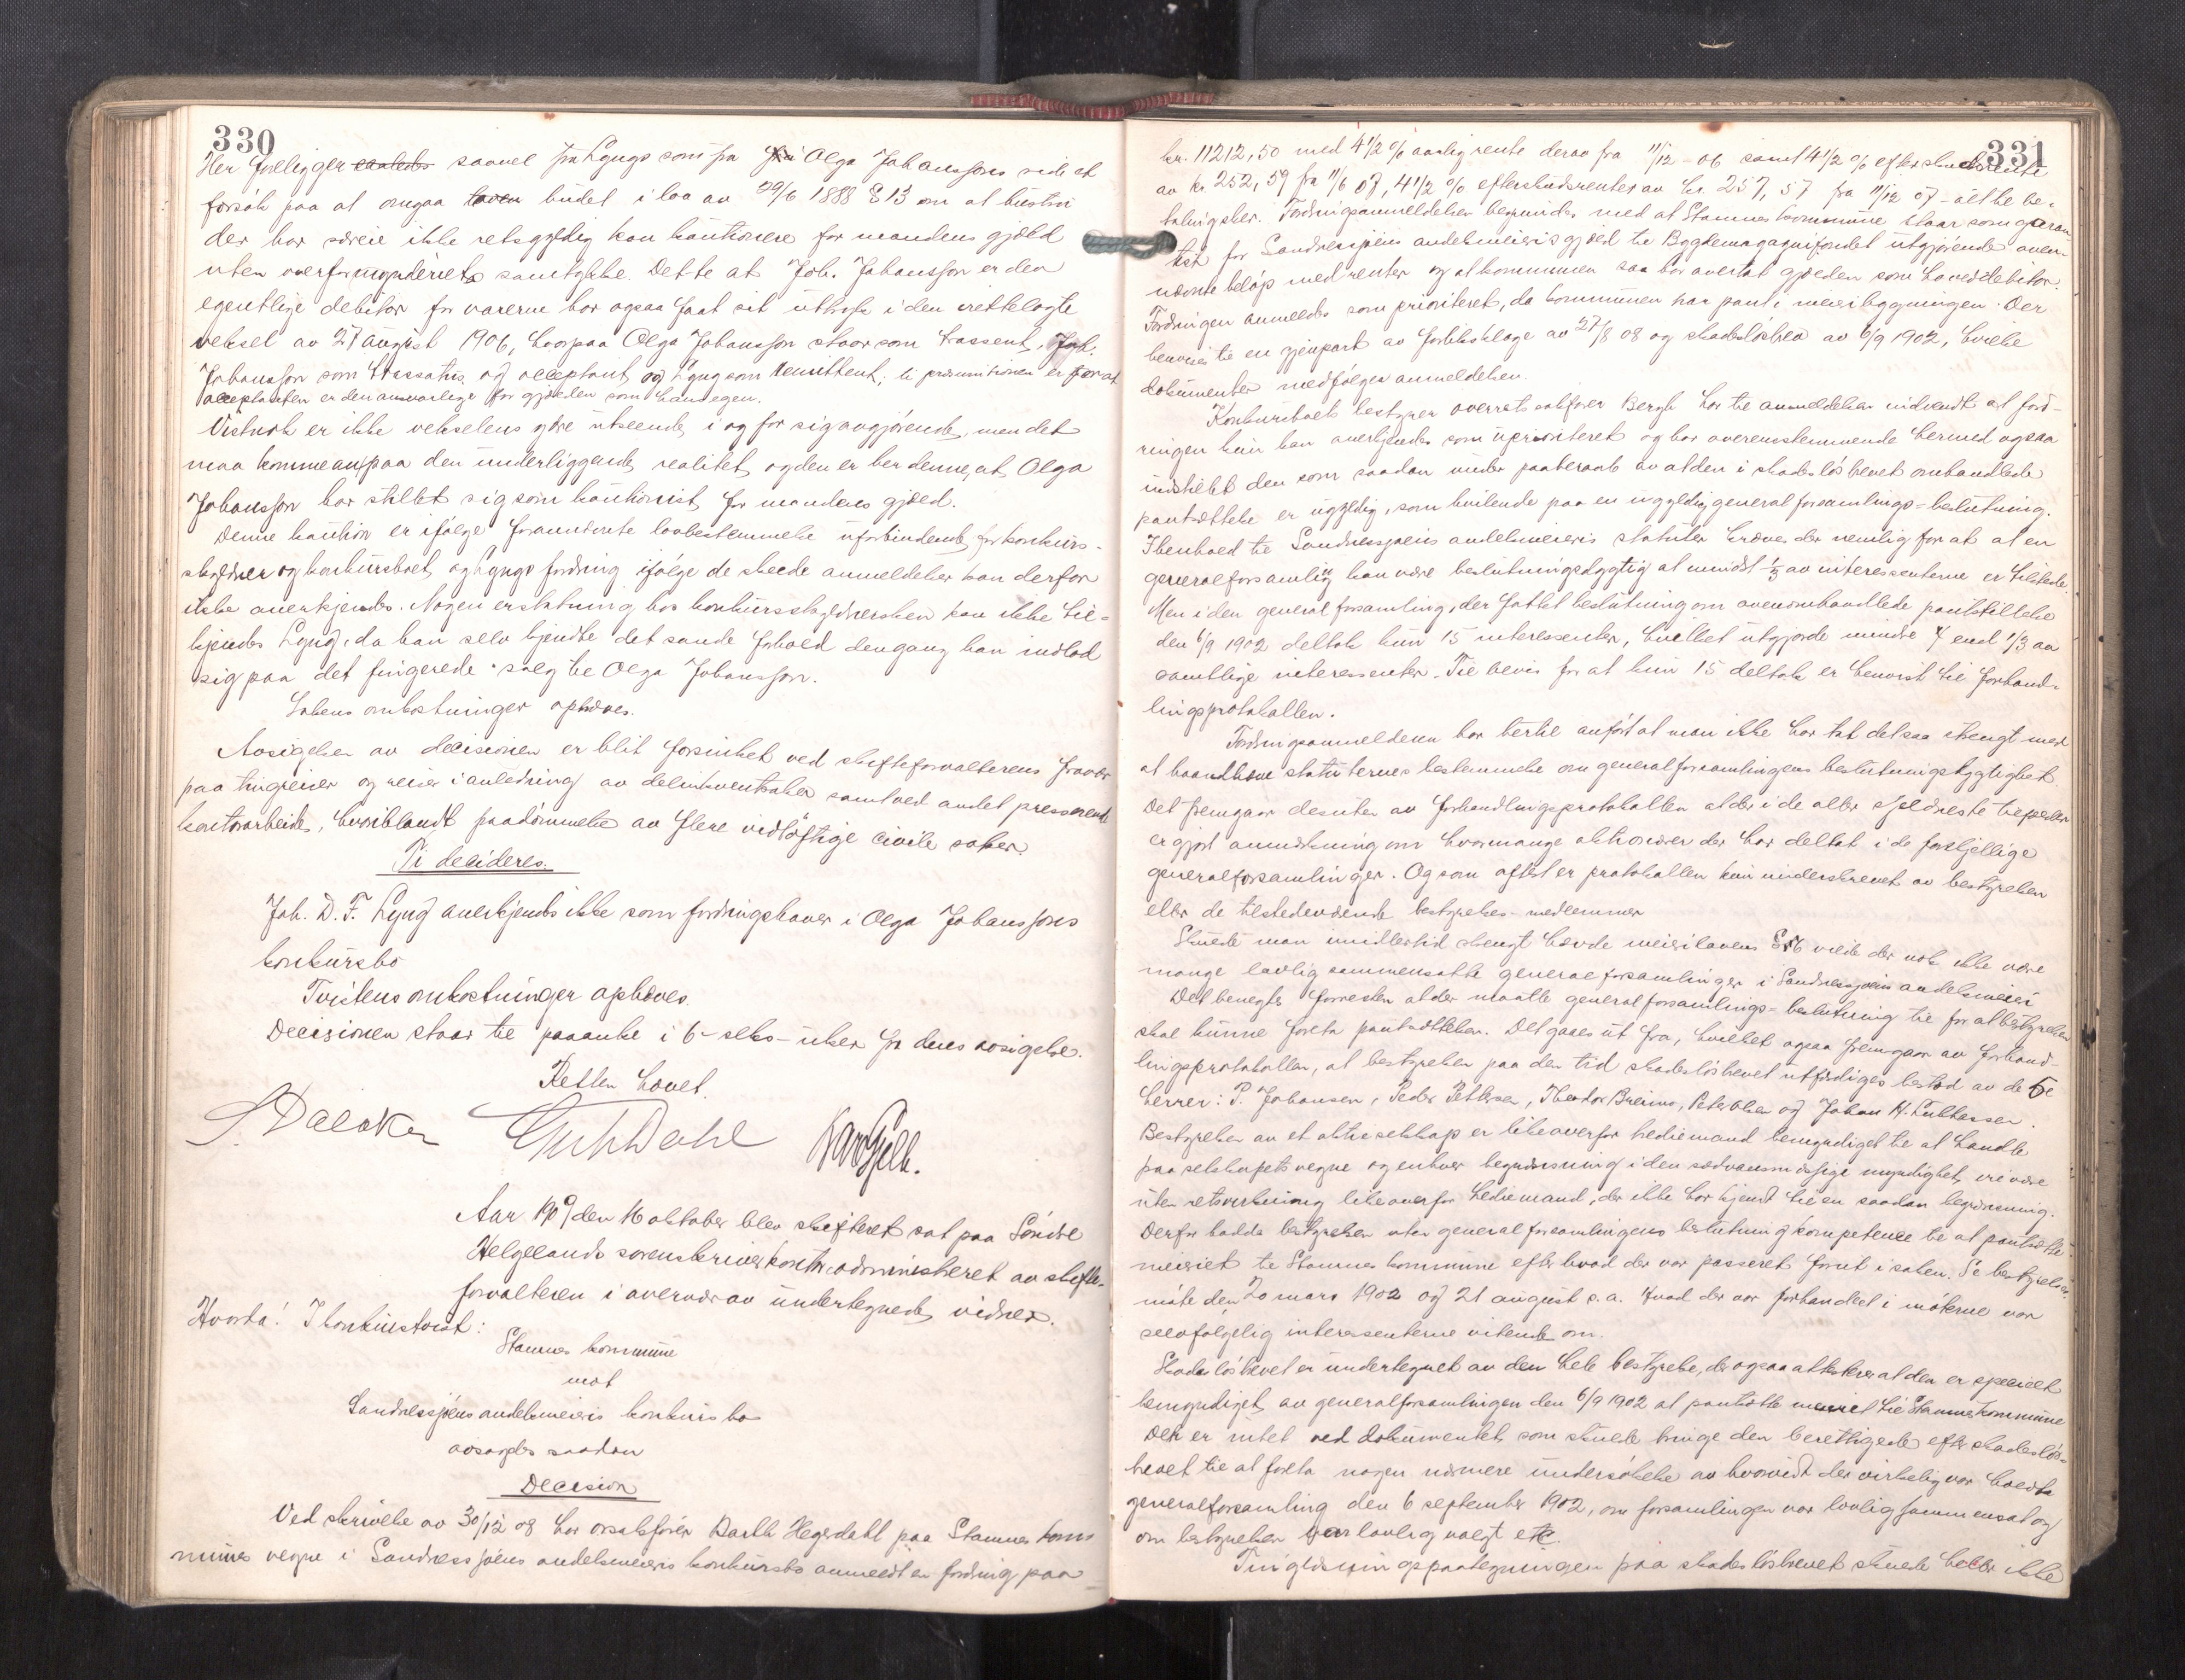 330
Her foreligger saaledes saavel fra Lyngs som fra Fru Olga Johanssons side et
forsøk paa at omgaa loven budet i lov av 29/6 1888 § 13 om at hustru
der har særeie ikke retsgyldig kan kautionere for mandens gjæld
uten overformynderiets samtykke. Dette at Joh. Johansson er den
egentlige debitor for varerne har ogsaa faat sit uttryk i den irettelagte
veksel av 27 august 1906, hvorpaa Olga Johansson staar som trassent, Joh.
Johansson som trassatus og acceptant og Lyng som remittent; ti præsumtionen er for at
acceptanten er den ansvarlige for gjælden som hans egen.
Vistnok er ikke vekselens ydre utseende i og for sig avgjørende, men det
maa komme an paa den underliggende realitet, og den er her denne, at Olga
Johansson har stillet sig som kautionist for mandens gjæld.
Denne kaution er ifølge forannævnte lovbestemmelse uforbindende for konkurs-
skyldner og konkursboet, og Lyngs fordring ifølge de skeede anmeldelser kan derfor
ikke anerkjendes. Nogen erstatning hos konkursskyldnersken kan ikke til-
kjendes Lyng, da han selv kjendte det sande forhold dengang han indlod
sig paa det fingerede salg til Olga Johansson.
Sakens omkostninger ophæves.
Avsigelsen av decisionen er blit forsinket ved skifteforvalterens fravær
paa tingreiser og reiser i anledning av delinkventsaker samt ved andet presserende
kontorarbeide, hvoriblandt paadømmelse av flere vidløftige civile saker.
Ti decideres:
Joh. D. F. Lyng anerkjendes ikke som fordringshaver i Olga Johanssons
konkursbo
Tvistens omkostninger ophæves.
Decisionen staar til paaanke i 6- seks- uker fra dens avsigelse.
Retten hævet.
Aar 1909 den 16 oktober blev skifteret sat paa Søndre
Helgelands sorenskriverkontor administreret av skifte-
forvalteren i overvær av undertegnede vidner.
Hvorda! I konkurstvist:
Stamnes kommune
mot
Sandnessjøens andelsmeieris konkursbo
avsagdes saadan
Decision
Ved skrivelse av 30/12 08 har overretssakfører Barth Hegerdahl paa Stamnes kom-
munes vegne i Sandnessjøens andelsmeieris konkursbo anmeldt en fordring paa
331
kr. 11212,50 med 4 1/2 % aarlig rente derav fra 11/12 - 06 samt 4 1/2 % efterskudsrente
av kr. 252,59 fra 11/6 07, 4 1/2 % efterskudsrenter av kr. 257,57 fra 11/12 07 - alt til be-
taling sker. Fordringsanmeldelsen begrundes med at Stamnes kommune staar som garan
tist for Sandnessjøens andelsmeieris gjæld til Bygdemagasinfondet utgjørende oven-
nævnte beløp med renter og at kommunen saa har overtat gjælden som hoveddebitor.
Fordringen anmeldes som prioriteret, da kommunen har pant i meieribygningen. Der
henvises til en gjenpart av forliksklage av 27/8 08 og skadesløsbrev av 6/9 1902, hvilke
dokumenter medfølger anmeldelsen.
Konkursboets bestyrer overretssakfører Bergh har til anmeldelsen indvendt at ford-
ringen kun kan anerkjendes som uprioriteret og har overensstemmende hermed ogsaa
indstillet den som saadan under paaberaab av at den i skadesløsbrevet omhandlede
pantsættelse er ugyldig, som hvilende paa en ugyldig generalforsamlings-beslutning.
I henhold til Sandnessjøens andelsmeieris statuter kræves der nemlig for at at en
generalforsamling kan være beslutningsdygtig at mindst 1/3 av interessenterne er tilstede.
Men i den generalforsamling, der fattet beslutning om ovenomhandlede pantstillelse
den 6/9 1902 deltok kun 15 interessenter, hvilket utgjorde mindre end 1/3 av
samtlige interessenter. Til bevis for at kun 15 deltok er henvist til forhand-
lingsprotokollen.
Fordringsanmelderen har hertil anført at man ikke har tat det saa strengt med
at haandhæve statuternes bestemmelse om generalforsamlingens beslutningsdygtighet.
Det fremgaar desuten av forhandlingsprotokollen at der i de aller sjeldneste tilfælder
er gjort anmerkning om hvormange aktionærer der har deltat i de forskjellige
generalforsamlinger. Og som oftest er protokollen kun underskrevet av bestyrelsen
eller de tilstedeværende bestyrelses-medlemmer
Skulde man imidlertid strengt hævde meierilovens § 16 vilde der nok ikke være
mange lovlig sammensatte generalforsamlinger i Sandnessjøens andelsmeieri
Det benegtes forresten at der maatte generalforsamlings-beslutning til for at bestyrelsen
skal kunne foreta pantsættelsen. Det gaaes ut fra, hvilket ogsaa fremgaar av forhand-
lingsprotokollen, at bestyrelsen paa den tid skadesløsbrevet utfærdiges bestod av de 5
herrer: P. Johansen, Peder Pettersen, Theodor Breimo, Peter Olsen og Johan H. Lukkassen.
Bestyrelsen av et aktieselskap er likeoverfor trediemand bemyndiget til at handle
paa selskapets vegne og enhver begrænsning i den sedvansmæssige myndighet vil være
uten retsvirkning likeoverfor trediemand, der ikke har kjendt til en saadan begrænsning.
Derfor hadde bestyrelsen uten generalforsamlingens beslutning kompetence til at pantsætte
meieriet til Stamnes kommune efter hvad der var passeret forut i saken. Se bestyrelses-
møte den 20 mars 1902 og 21 august s. a. Hvad der var forhandlet i møterne var
selvfølgelig interessenterne vitende om.
Skadesløsbrevet er undertegnet av den hele bestyrelse, der ogsaa attesterer at den er specielt
bemyndiget av generalforsamlingen den 6/9 1902 at pantsætte meieriet til Stamnes kommune
Der er intet ved dokumentet, som skulde tvinge den berettigede efter skadesløs-
brevet til at foreta nogen nærmere undersøkelse av hvorvidt der virkelig var holdt
generalforsamling den 6 september 1902, om forsamlingen var lovlig sammensat og
om bestyrelsen var lovlig valgt etc.
Tinglæsningspaategningen paa skadesløsbrevet skulde heller ikke